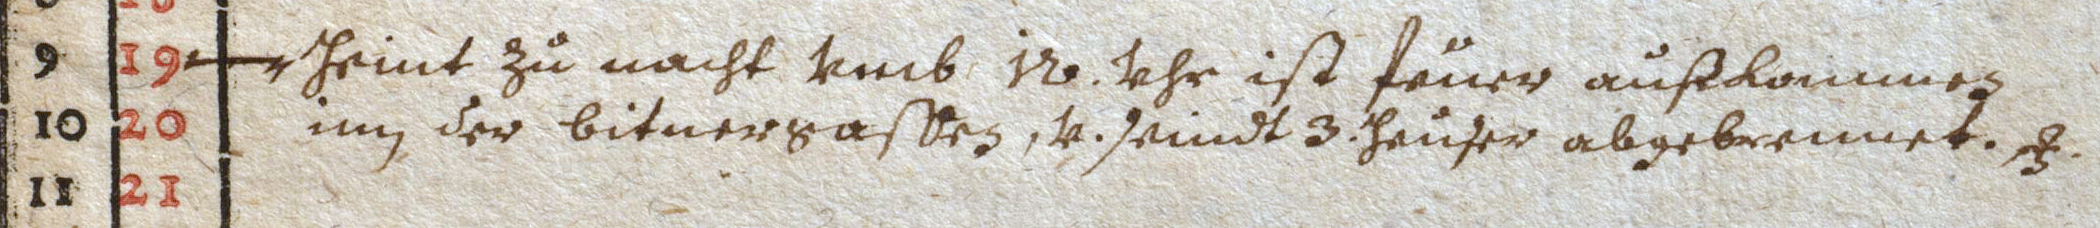 9 19 heint zu nacht vmb 12. Vhr ist feuer außkommen
10 20 inn der bitnergassen, v. seindt 3. heuser abgebrennet.
11 21